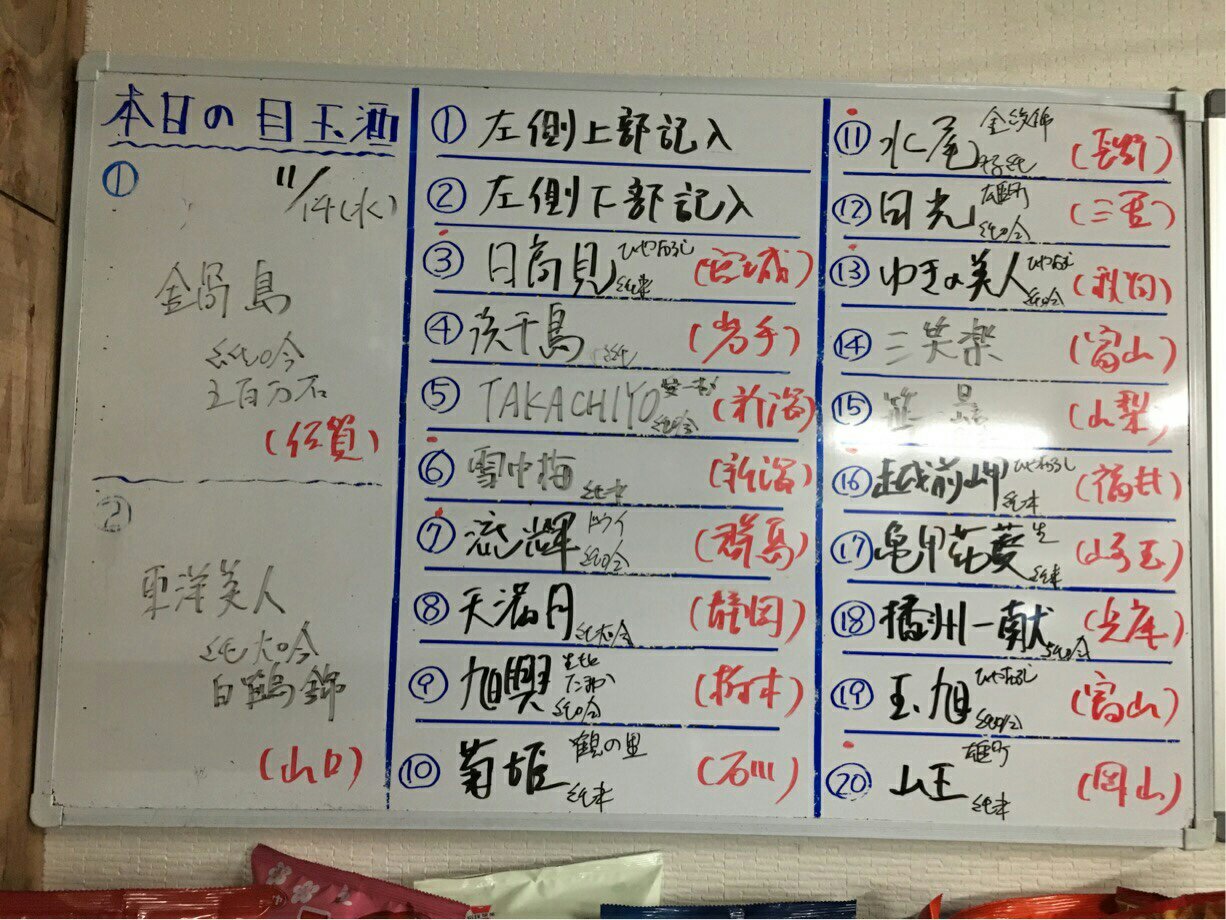 本日の目玉酒
①
11/14(水)
鍋島
純吟
五百万石
(佐賀)
②
東洋美人
純大吟
白鶴錦
(山口)
① 左側上部記入
② 左側下部記入
③ 日高見 ひやおろし 純米 (宮城)
④ 浜千鳥 純 (岩手)
⑤ TAKACHIYO 純吟 (新潟)
⑥ 雪中梅 純米 (新潟)
⑦ 流輝 純吟 (群馬)
⑧ 天満月 純大吟 (静岡)
⑨ 旭興 生酛 たまか 純吟 (栃木)
⑩ 菊姫 鶴の里 純米 (石川)
⑪ 水尾 金紋錦 特純 (長野)
⑫ 日光 雄町 純吟 (三重)
⑬ ゆきの美人 ひやおろし 純吟 (秋田)
⑭ 三笑楽 (富山)
⑮ 笹一 (山梨)
⑯ 越前岬 ひやおろし 純米 (福井)
⑰ 亀甲花菱 生 純米 (埼玉)
⑱ 播州一献 純吟 (兵庫)
⑲ 玉旭 ひやおろし 純吟 (富山)
⑳ 山王 雄町 純米 (岡山)